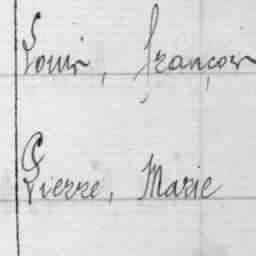 Louis, françois
Pierre, Marie